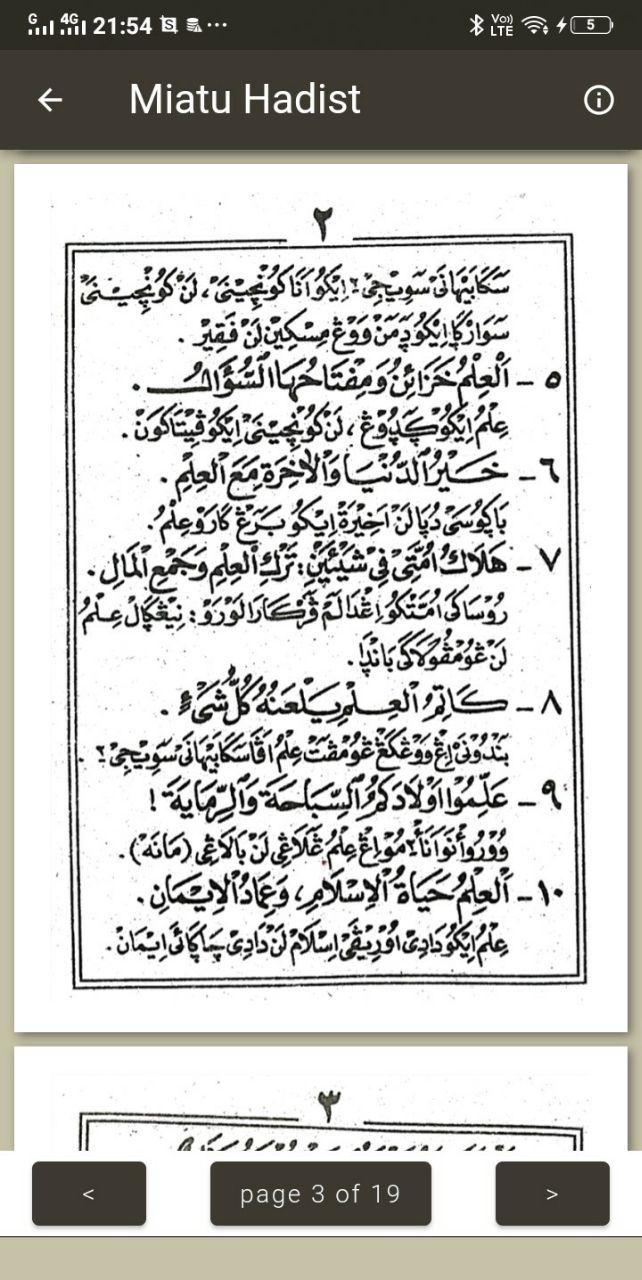 21:54
G 4G
VoD LTE
5
Miatu Hadist
٢
سَكَابَيْهَانَىْ سَوِيْجِىْ٢ اِيْكُوْ اَنَا كُوْنْچِيْنَىْ، لَنْ كُوْنْچِيْنَىْ
سَوَارْݢَا اِيْكُوْ دٓمَنْ وَوْڠْ مِسْكِيْنْ لَنْ فَقِيْرْ.
٥ - اَلْعِلْمُ خَزَائِنُ وَمِفْتَاحُهَا السُّؤَالُ.
عِلْمُ اِيْكُوْ ڮٓدَوْڠْ، لَنْ كُوْنْچِيْنَىْ اِيْكُوْ ڤِيْتَاكَوْنْ.
٦ - خَيْرُ الدُّنْيَا وَالْاٰخِرَةِ مَعَ الْعِلْمِ.
بَاݢُوْسَىْ دُنْيَا لَنْ اَخِيْرَةْ اِيْكُوْ بَرٓڠْ كَارَوْ عِلْمُ.
٧ - هَلَاكُ اُمَّتِىْ فِىْ شَيْئَيْنِ: تَرْكِ الْعِلْمِ وَجَمْعِ الْمَالِ.
رُوْسَاكَىْ اُمَّتْ‌كُوْ اِڠْدَالٓمْ ڤٓرْكَارَا لَوْرَوْ: نِيْڠْݢَالْ عِلْمُ
لَنْ ڠُوْمْڤُوْلَاكَىْ بَانْدَا.
٨ - كَاتِمُ الْعِلْمِ يَلْعَنُهُ كُلُّ شَىْءٍ.
بٓنْدَوْنَىْ اِڠْ وَوْڠْ‌كَڠْ ڠُوْمْڤٓتْ عِلْمُ اَڤَا سَكَابَيْهَانَىْ سَوِيْجِىْ٢.
٩ - عَلِّمُوْا اَوْلَادَكُمُ السِّبَاحَةَ وَالرِّمَايَةَ !
وُوْرُوْأَنَوْ اَنَأْ٢ مُوْ اِڠْ عِلْمُ ڠْلَاڠِى لَنْ بَالَاڠِى (مَانَهْ).
١٠ - اَلْعِلْمُ حَيَاةُ الْاِسْلَامِ، وَعِمَادُ الْاِيْمَانِ.
عِلْمُ اِيْكُوْ دَادِىْ اُوْرِيْڤَىْ اِسْلَامْ لَنْ دَادِىْ چَاݢَاكَىْ اِيْمَانْ.
٣
<
page 3 of 19
>